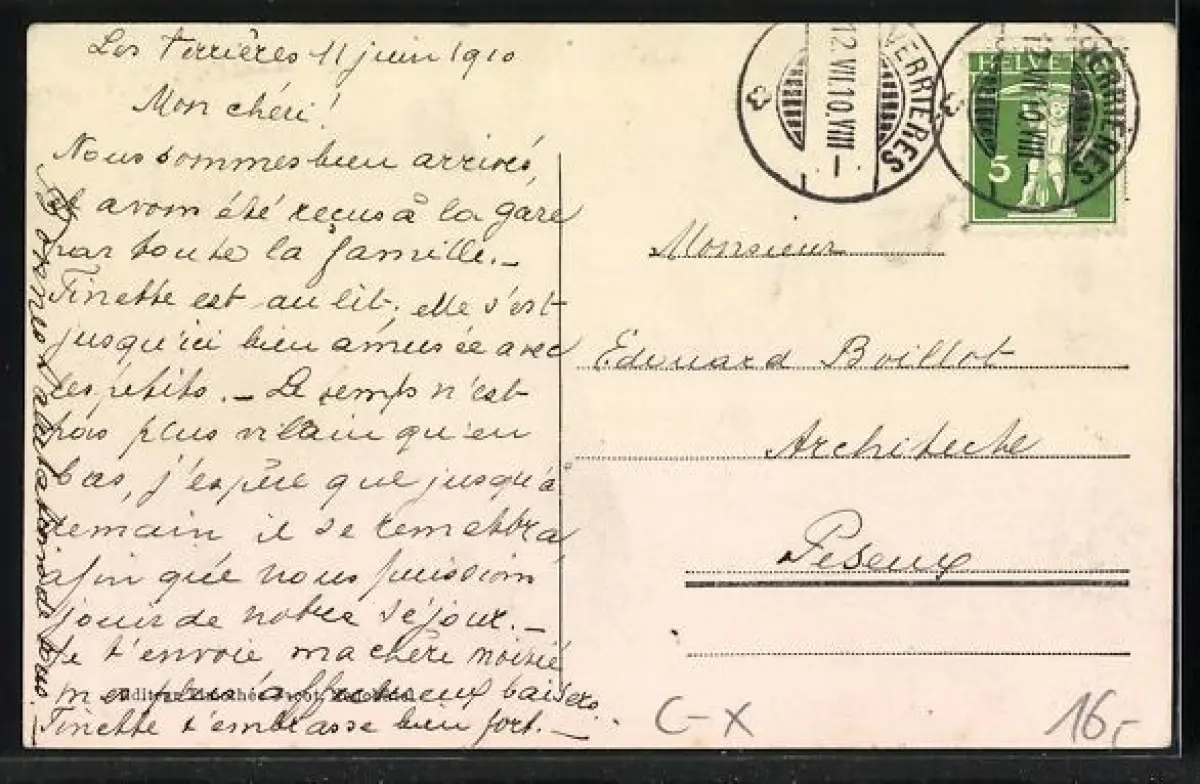 Les Verrières 11 juin 1910
Mon chéri!
Nous sommes bien arrivés,
et avons été reçus à la gare
par toute la famille. —
Finette est au lit, elle s'est
jusqu'ici bien amusée avec
les petits. — Le temps n'est
pas plus vilain qu'en
bas, j'espère que jusqu'à
demain il se remettra
afin que nous puissions
jouir de notre séjour. —
Je t'envoie ma chère moitié
mes plus affectueux baisers.
Finette t'embrasse bien fort. —
Bonnes salutations de tous
Editeur Timothée Jacot,
12.VII.10.VIII —
VERRIERES
HELVE
5
12.VII.10.VIII —
VERRIERES
Monsieur
Edouard Boillot
Architecte
Peseux
C-X
16,-